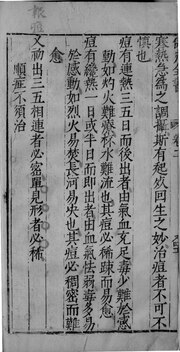 寒熱急爲之調攝斯有起死回生之妙治痘者不可不
慎也
痘有連熱三五日而後出者由氣血充足毒少難於感
動如灼火難爇杯水難流也其痘必稀疎而易愈
痘有纔熱一日或半日而即出者由血氣怯弱毒多易
於感動如烈火易焚長河易决也其痘必稠密而難
愈
又動出三五相連者必密單見形者必稀
順症不須治